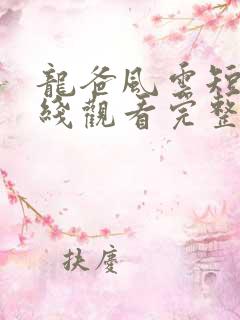 龍爸風雲短
綫觀看完整
扶慶